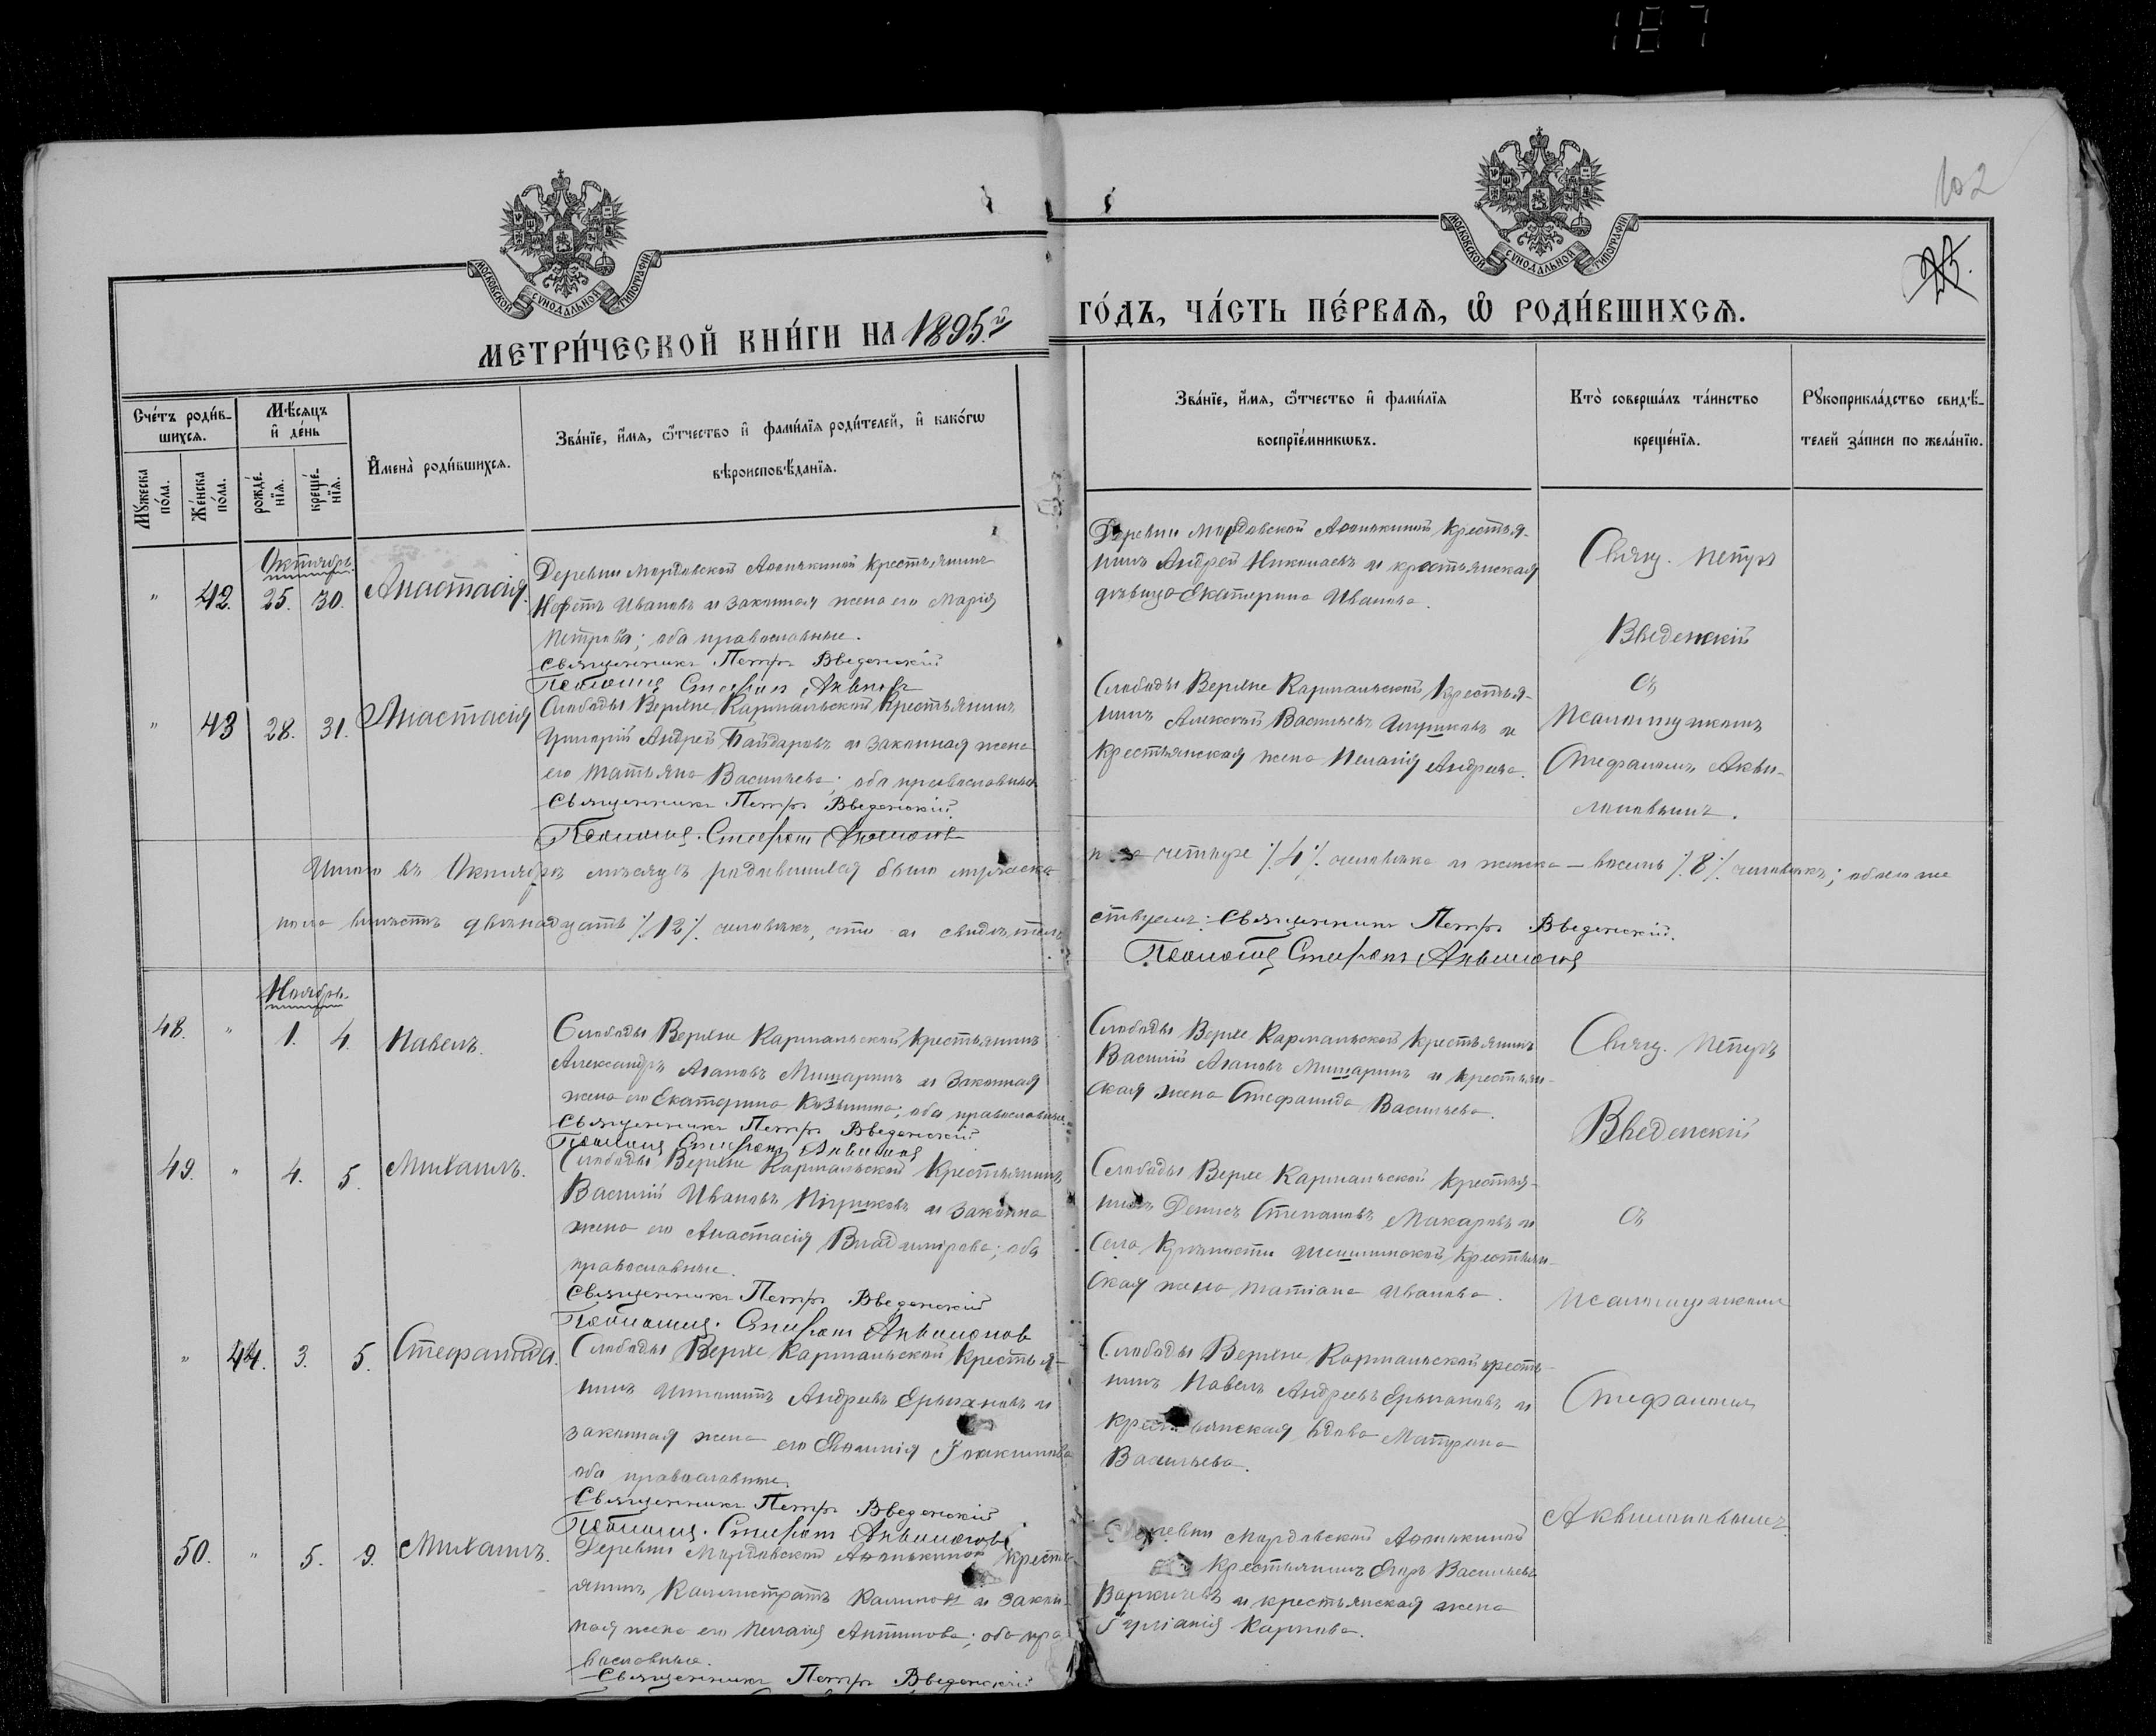 187
102
25.
МОСКОВСКОЙ СУНОДАЛЬНОЙ ТИПОГРАФІИ
МОСКОВСКОЙ СУНОДАЛЬНОЙ ТИПОГРАФІИ
МЕТРИ́ЧЕСКОЙ КНИ́ГИ НА 1895.й
ГО́ДЪ, ЧА́СТЬ ПЕ́РВАѦ, Ѡ РОДИ́ВШИХСѦ.
Сче́тъ роди́в-
шихсѧ.
Мѣ́сѧцъ
и҆ де́нь
Мꙋ́жеска по́ла.
Же́нска по́ла.
рожде́нїѧ.
креще́нїѧ.
И҆мена̀ роди́вшихсѧ.
Зва́нїе, и҆́мѧ, ѻ҆́тчество и҆ фами́лїѧ роди́телей, и҆ како́гѡ
вѣроисповѣ́данїѧ.
Зва́нїе, и҆́мѧ, ѻ҆́тчество и҆ фами́лїѧ
воспрїе́мникѡвъ.
Кто̀ соверша́лъ та́инство
креще́нїѧ.
Рꙋкоприкла́дство свидѣ́-
телей за́писи по жела́нїю.
Октябрь.
" 42. 25. 30. Анастасія.
Деревни Мордовской Аѳонькиной крестьянинъ
Ивановъ и законная жена его Марія
Петрова; оба православные.
Священникъ Петръ Введенскій
Псаломщ. Стефанъ
Деревни Мордовской Аѳонькиной крестья-
нинъ Андрей Николаевъ и крестьянская
дѣвица Екатерина Иванова.
Свящ. Петръ
Введенскій
съ
псаломщикомъ
Стефаномъ Акви-
лоновымъ.
" 43 28. 31. Анастасія
Слободы Верхне Кармальской крестьянинъ
Григорій Андрей Байдаровъ и законная жена
его Татьяна Васильева; оба православные
Священникъ Петръ Введенскій.
Псаломщ. Стефанъ Аквилоновъ
Слободы Верхне Кармальской крестья-
нинъ Алексей Васильевъ и
крестьянская жена Пелагія Андреева.
Итого въ Октябрѣ мѣсяцѣ родившихся было мужеска
четыре ./.4./. человѣка и женска – восемь ./.8./. человѣкъ; обоего же
пола вмѣстѣ двѣнадцать ./.12./. человѣкъ, что и свидѣтель-
ствуемъ: Священникъ Петръ Введенскій.
Псаломщ. Стефанъ Аквилоновъ
Ноябрь.
48. " 1. 4. Павелъ.
Слободы Верхне Кармальской крестьянинъ
Александръ Агаповъ Мишаринъ и законная
жена его Екатерина Козьмина; оба православные.
Священникъ Петръ Введенскій
Псаломщ. Стефанъ Аквилоновъ
Слободы Верхне Кармальской крестьянинъ
Василій Агаповъ Мишаринъ и крестьян-
ская жена Стефанида Васильева.
Свящ. Петръ
Введенскій
съ
псаломщикомъ
Стефаномъ
Аквилоновымъ.
49. " 4. 5. Михаилъ.
Слободы Верхне Кармальской крестьянинъ
Василій Ивановъ и законна
жена его Анастасія Владимірова; оба
православные.
Священникъ Петръ Введенскій
Псаломщ. Стефанъ Аквилоновъ
Слободы Верхне Кармальской крестья-
нинъ Денисъ Степановъ Макаровъ и
Села крѣпости Шешминской крестьян-
ская жена Татіана Иванова.
" 44. 3. 5. Стефанида.
Слободы Верхне Кармальской крестья-
нинъ Ипполитъ Андреевъ и
законная жена его Евѳимія Іоакимова
оба православные.
Священникъ Петръ Введенскій
Псаломщ. Стефанъ Аквилоновъ
Слободы Верхне Кармальской кресть-
нинъ Павелъ Андреевъ и
крестьянская вдова Матрона
Васильева.
50. " 5. 9. Михаилъ.
Деревни Мордовской Аѳонькиной кресть-
янинъ Каллистратъ и закон-
ная жена его Пелагія Антипова; оба пра
вославные.
Священникъ Петръ Введенскій
Деревни Мордовской Аѳонькиной
крестьянинъ Егоръ Васильевъ
и крестьянская жена
Іуліанія Карпова.